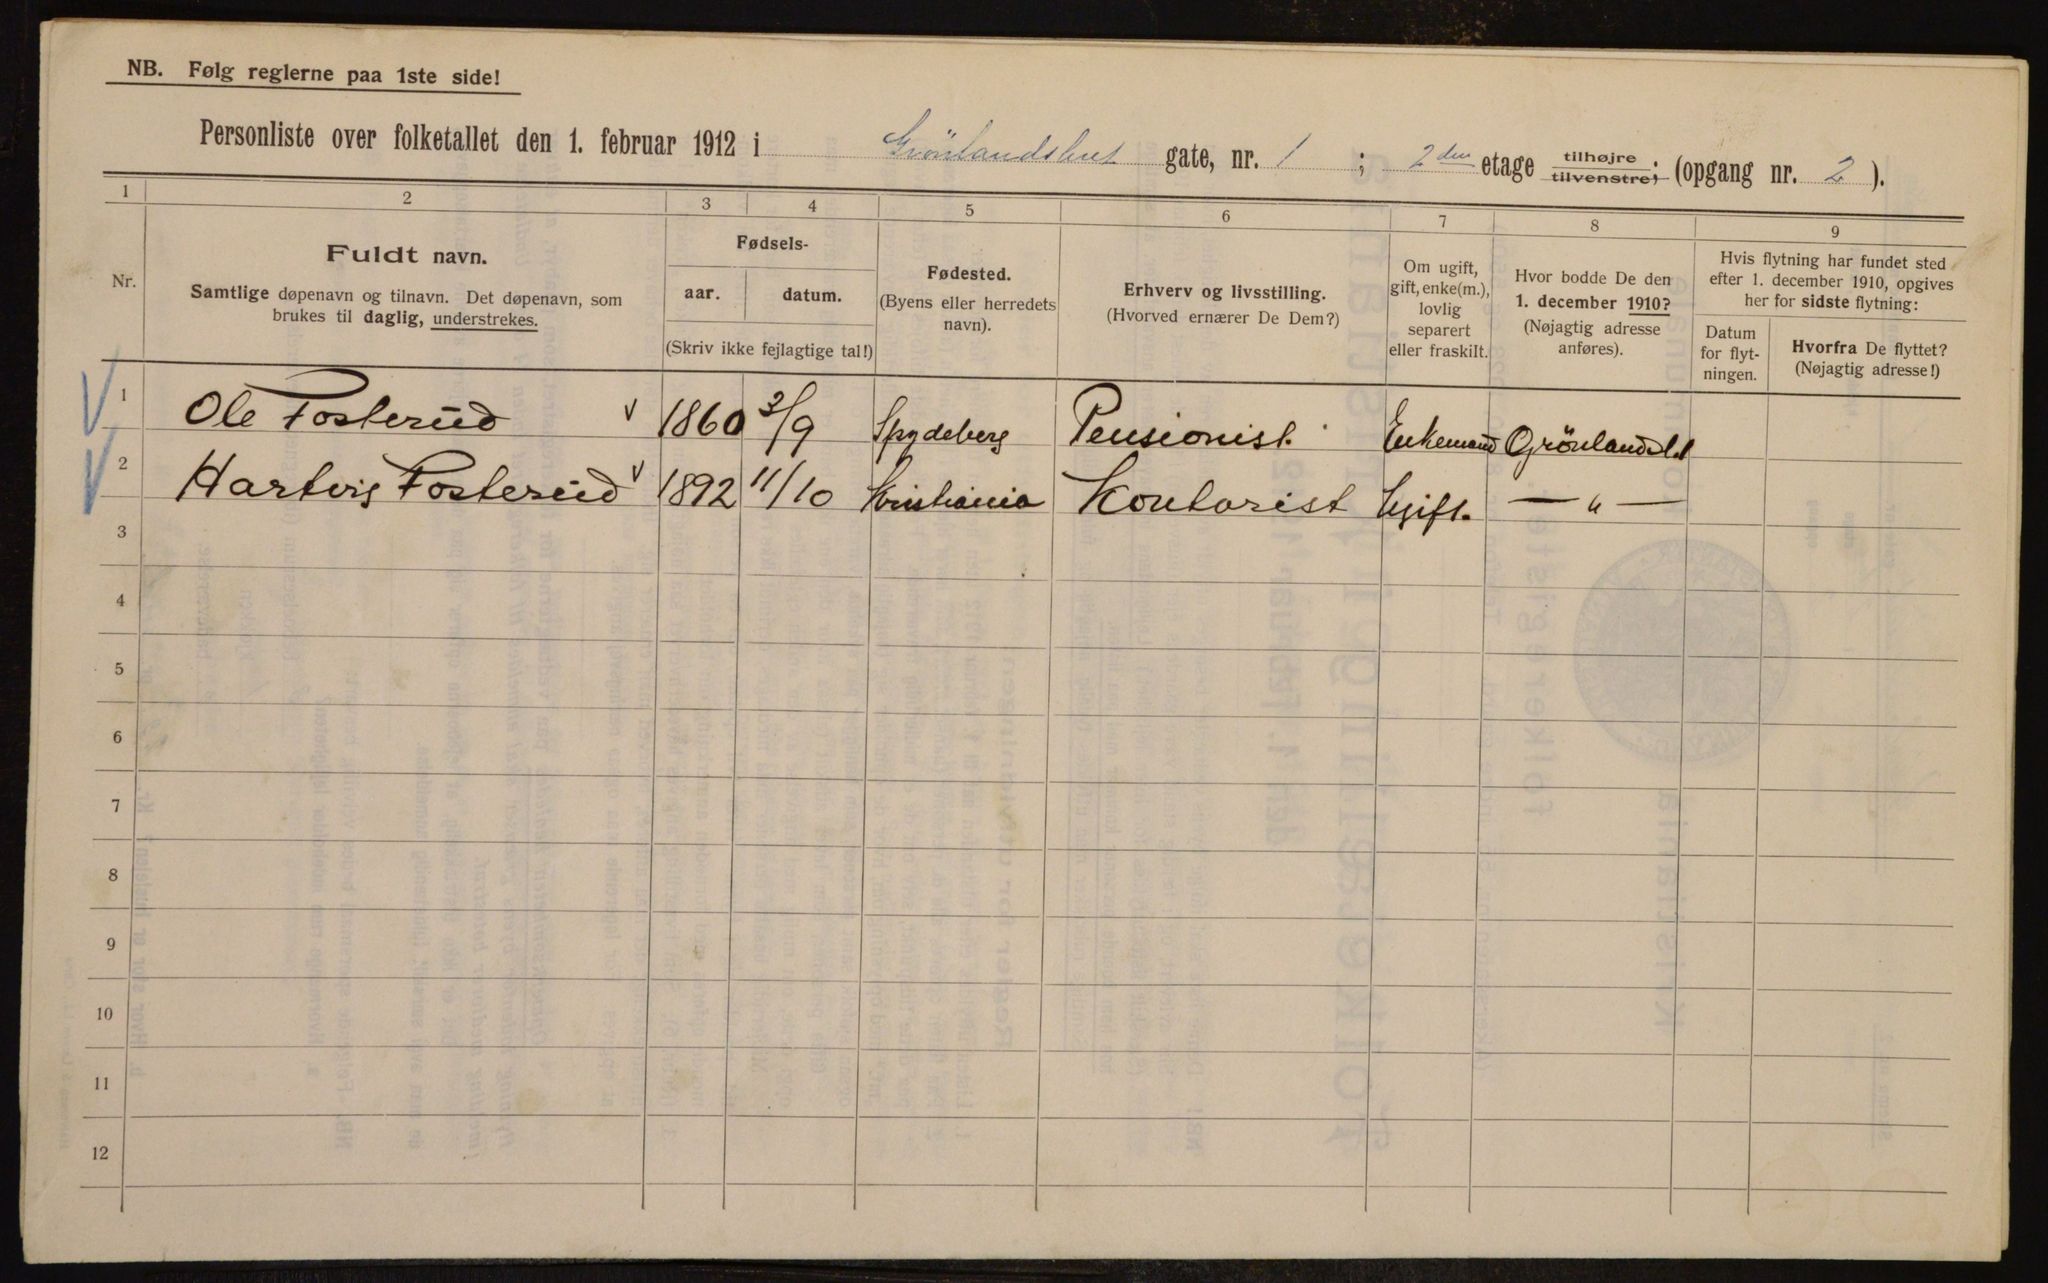 NB. Følg reglerne paa 1ste side!
Personliste over folketallet den 1. februar 1912 i Grönlandsleret gate, nr. 1 ; 2den etage tilhøjre tilvenstre; (opgang nr. 2 ).
1 2 3 4 5 6 7 8 9
Nr.
Fuldt navn.
Samtlige døpenavn og tilnavn. Det døpenavn, som
brukes til daglig, understrekes.
Fødsels-
aar. datum.
(Skriv ikke fejlagtige tal!)
Fødested.
(Byens eller herredets
navn).
Erhverv og livsstilling.
(Hvorved ernærer De Dem?)
Om ugift,
gift, enke(m.),
lovlig
separert
eller fraskilt.
Hvor bodde De den
1. december 1910?
(Nøjagtig adresse
anføres).
Hvis flytning har fundet sted
efter 1. december 1910, opgives
her for sidste flytning:
Datum
for flyt-
ningen.
Hvorfra De flyttet?
(Nøjagtig adresse!)
1 Ole Fosterud v 1860 3/9 Spydeberg Pensionist. Enkemand Grönlandsl. 1
2 Hartvig Fosterud v 1892 11/10 Kristiania Kontorist Ugift. — „ —
3
4
5
6
7
8
9
10
11
12